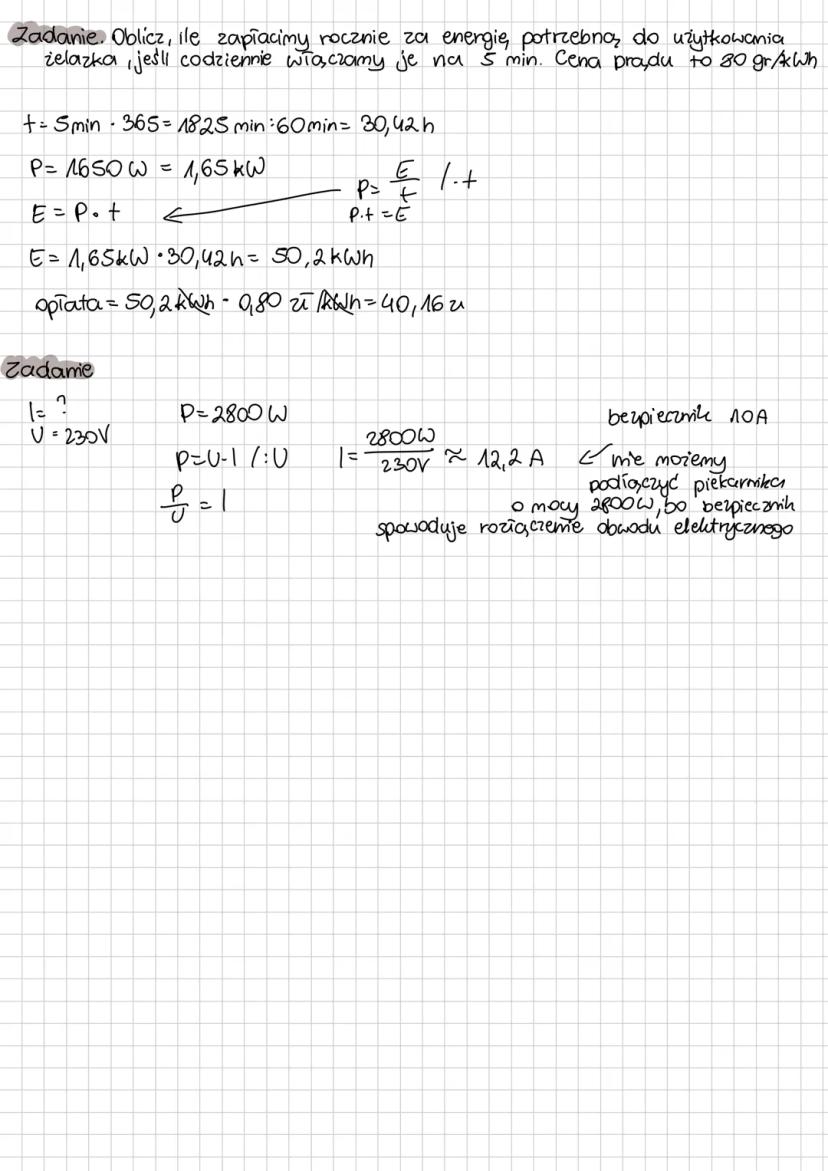 Zadanie. Oblicz, ile zapłacimy rocznie za energię potrzebną do użytkowania
żelazka, jeśli codziennie włączamy je na 5 min. Cena prądu to 80 gr/kWh
t = 5min · 365 = 1825 min : 60min = 30,42 h
P = 1650 W = 1,65 kW
P = E/t /·t
E = P · t
P·t = E
E = 1,65kW · 30,42h = 50,2 kWh
opłata = 50,2 kWh · 0,80 zł/kWh = 40,16 zł
Zadanie
I = ?
P = 2800 W
bezpiecznik 10A
U = 230V
P = U·I /:U
I = 2800W/230V ≈ 12,2 A
nie możemy
podłączyć piekarnika
P/U = I
o mocy 2800W, bo bezpiecznik
spowoduje rozłączenie obwodu elektrycznego